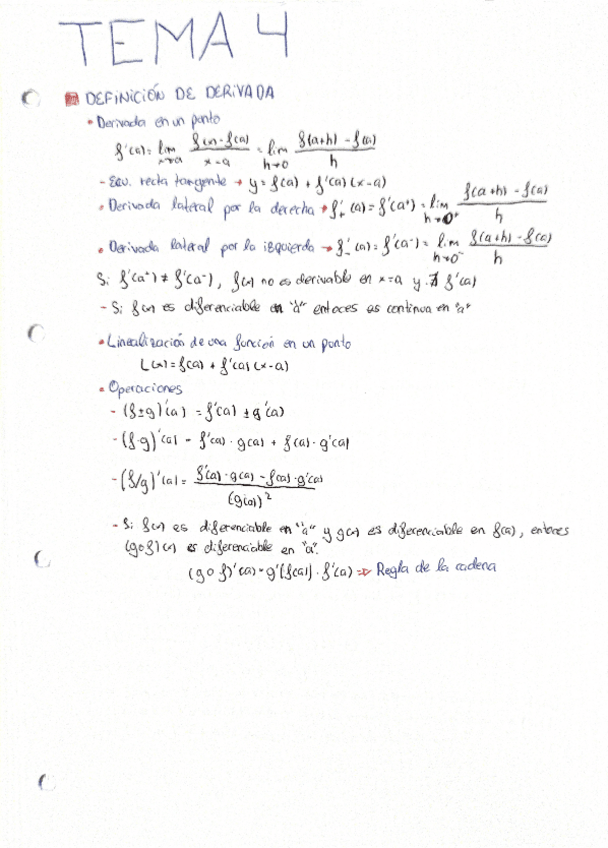 TEMA 4
DEFINICIÓN DE DERIVADA
• Derivada en un punto
f'(a) = lim x→a (f(x) - f(a))/(x - a) = lim h→0 (f(a+h) - f(a))/h
- Ecu. recta tangente → y = f(a) + f'(a) (x-a)
• Derivada lateral por la derecha → f'₊(a) = f'(a⁺) = lim h→0⁺ (f(a+h) - f(a))/h
• Derivada lateral por la izquierda → f'₋(a) = f'(a⁻) = lim h→0⁻ (f(a+h) - f(a))/h
Si f'(a⁺) ≠ f'(a⁻), f(x) no es derivable en x=a y ∄ f'(a)
- Si f(x) es diferenciable en "a" entoces es continua en "a"
• Linealización de una función en un punto
L(x) = f(a) + f'(a) (x-a)
• Operaciones
- (f±g)'(a) = f'(a) ± g'(a)
- (f·g)'(a) = f'(a) · g(a) + f(a) · g'(a)
- (f/g)'(a) = (f'(a) · g(a) - f(a) · g'(a))/(g(a))²
- Si f(x) es diferenciable en "a" y g(x) es diferenciable en f(a), entoces
(g∘f)(x) es diferenciable en "a".
(g∘f)'(a) = g'[f(a)] · f'(a) ⇒ Regla de la cadena